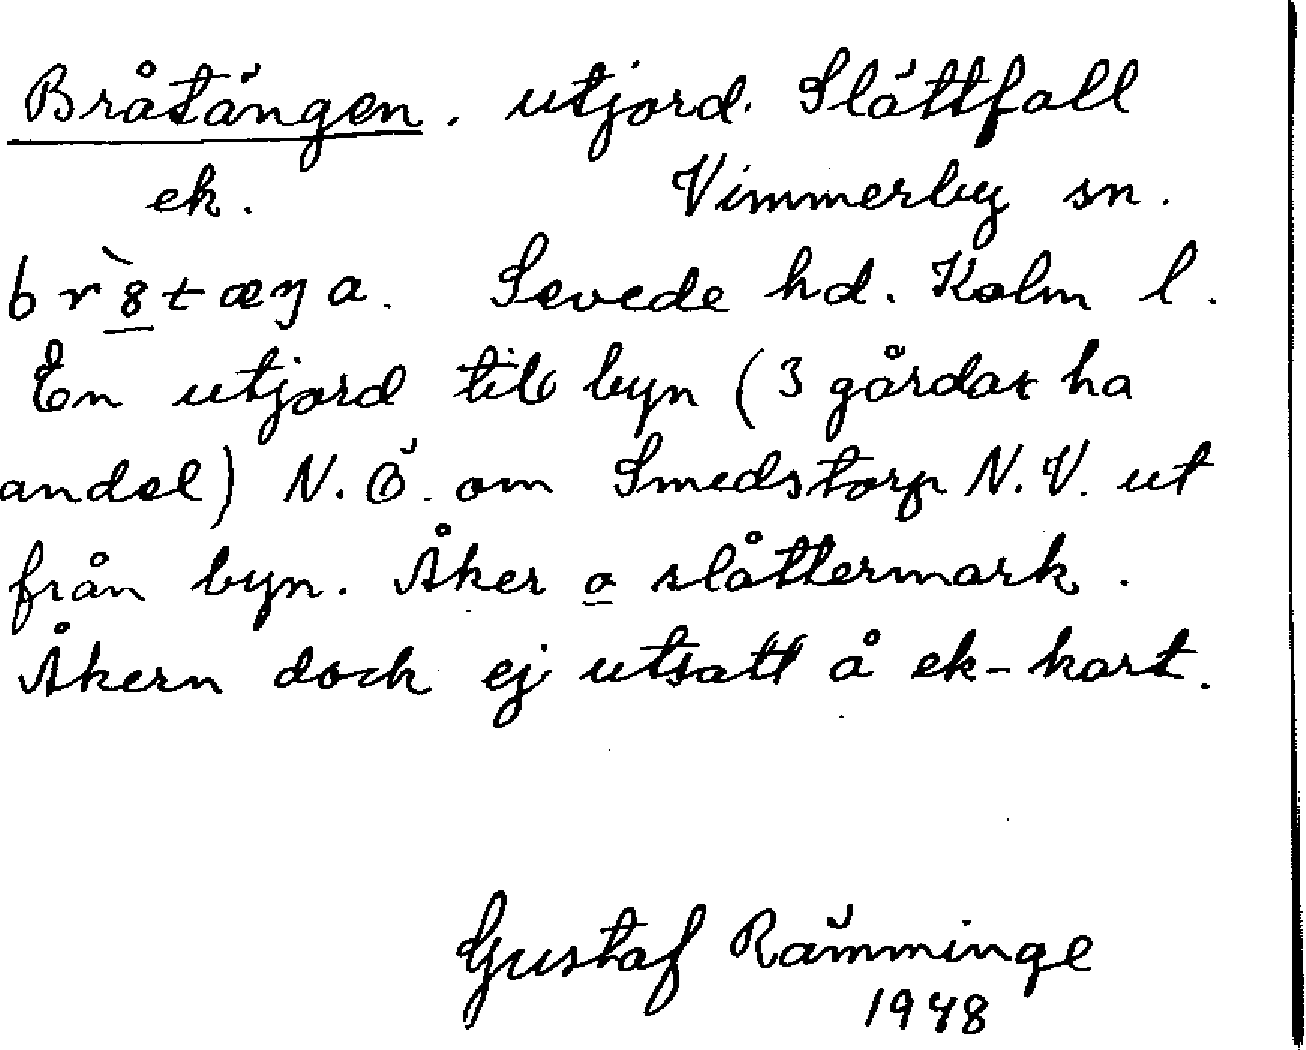 Bråtängen. utjord. Slättfall
ek. Vimmerby sn.
br8̲̀tæŋa. Sevede hd. Kalm l.
En utjord till byn (3 gårdar ha
andel) N.Ö. om Smedstorp N.V. ut
från byn. Åker o slåttermark.
Åkern dock ej utsatt å ek-kart.
Gustaf Rämminge
1948